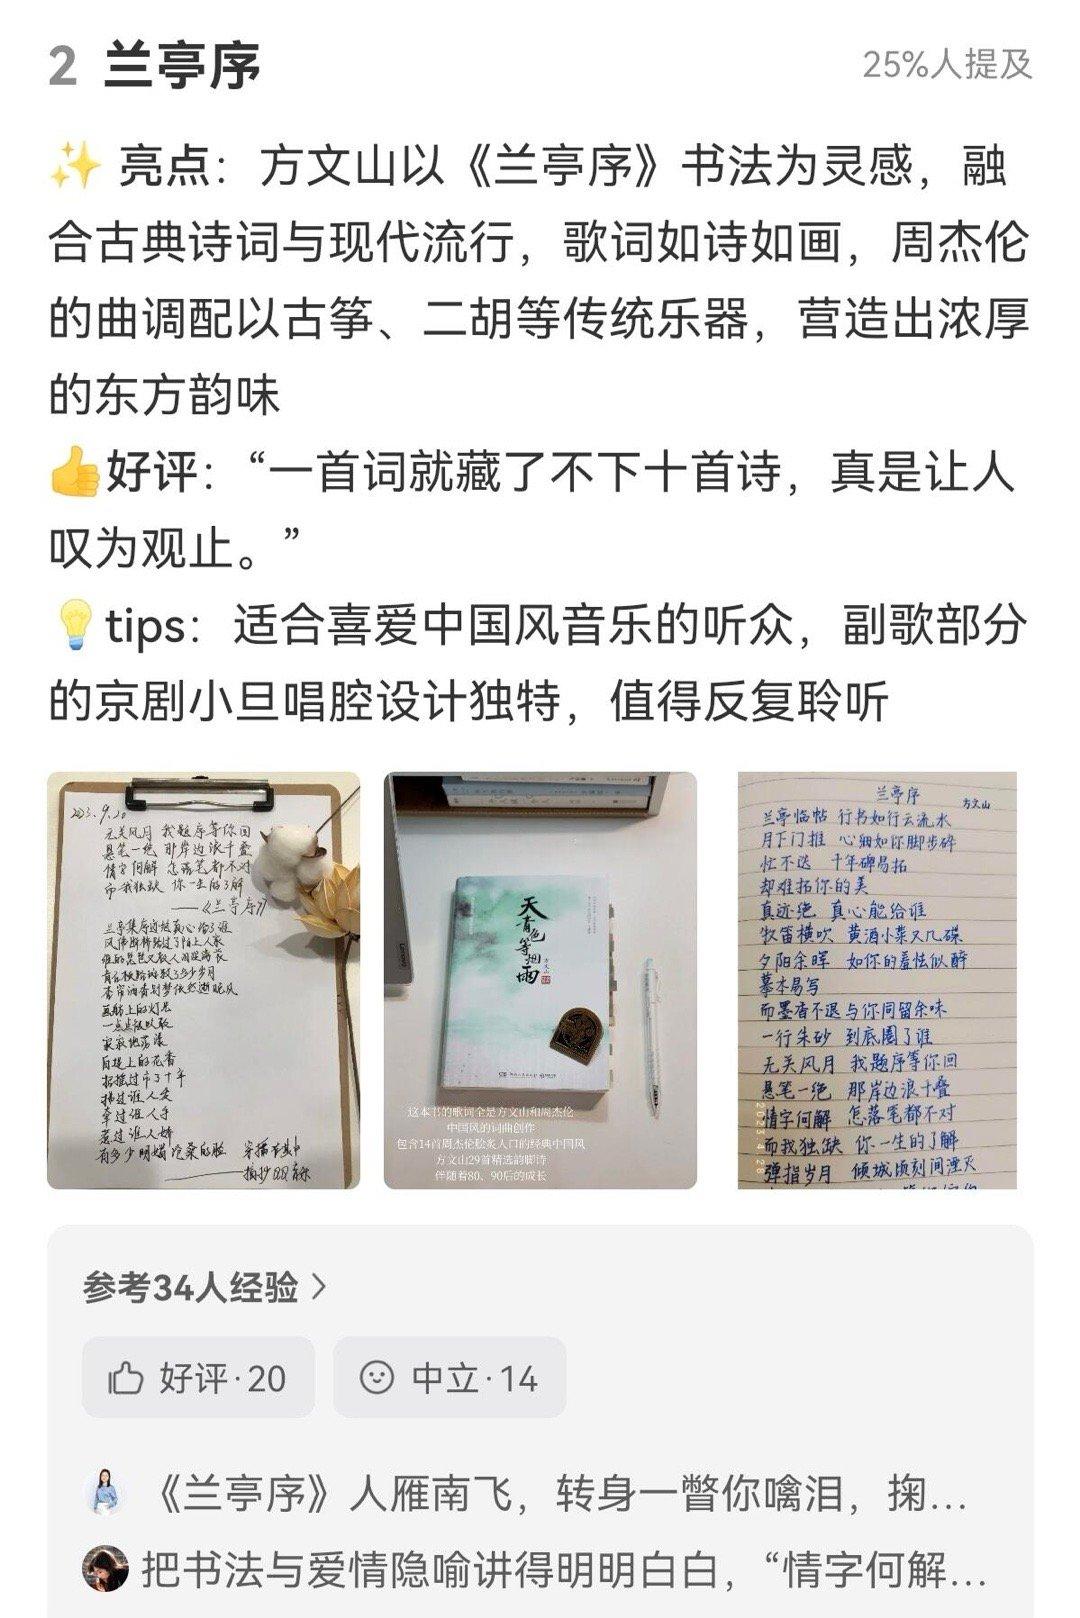 2 兰亭序
25%人提及
✨ 亮点：方文山以《兰亭序》书法为灵感，融
合古典诗词与现代流行，歌词如诗如画，周杰伦
的曲调配以古筝、二胡等传统乐器，营造出浓厚
的东方韵味
👍好评：“一首词就藏了不下十首诗，真是让人
叹为观止。”
💡tips：适合喜爱中国风音乐的听众，副歌部分
的京剧小旦唱腔设计独特，值得反复聆听
无关风月 我题序等你回
悬笔一绝 那岸边浪千叠
情字何解 怎落笔都不对
而我独缺 你一生的了解
——《兰亭序》
画舫上的灯思
寂寂地荡漾
白堤上的花香
招摇过市了千年
拂过谁人发
牵过谁人手
惹过谁人娇
天青色等烟雨
方文山
这本书的歌词全是方文山和周杰伦
中国风的词曲创作
包含14首周杰伦脍炙人口的经典中国风
方文山29首精选韵脚诗
伴随着80、90后的成长
兰亭序
方文山
兰亭临帖 行书如行云流水
月下门推 心细如你脚步碎
忙不迭 千年碑易拓
却难拓你的美
真迹绝 真心能给谁
牧笛横吹 黄酒小菜又几碟
夕阳余晖 如你的羞怯似醉
摹本易写
而墨香不退与你同留余味
一行朱砂 到底圈了谁
无关风月 我题序等你回
悬笔一绝 那岸边浪千叠
情字何解 怎落笔都不对
而我独缺 你一生的了解
弹指岁月 倾城顷刻间湮灭
2023.4.28
参考34人经验 >
好评·20
中立·14
《兰亭序》人雁南飞，转身一瞥你噙泪，掬...
把书法与爱情隐喻讲得明明白白，“情字何解...